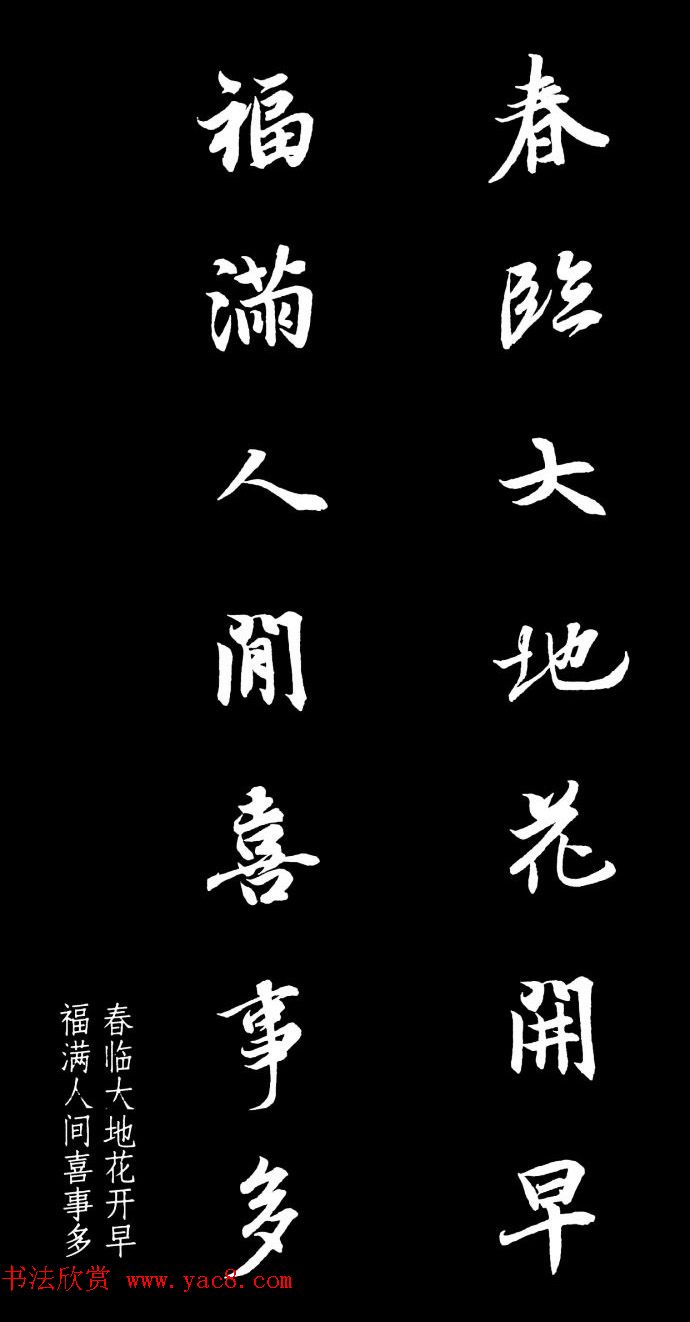 春臨大地花開早
福滿人閒喜事多
春临大地花开早
福满人间喜事多
书法欣赏 www.yac8.com